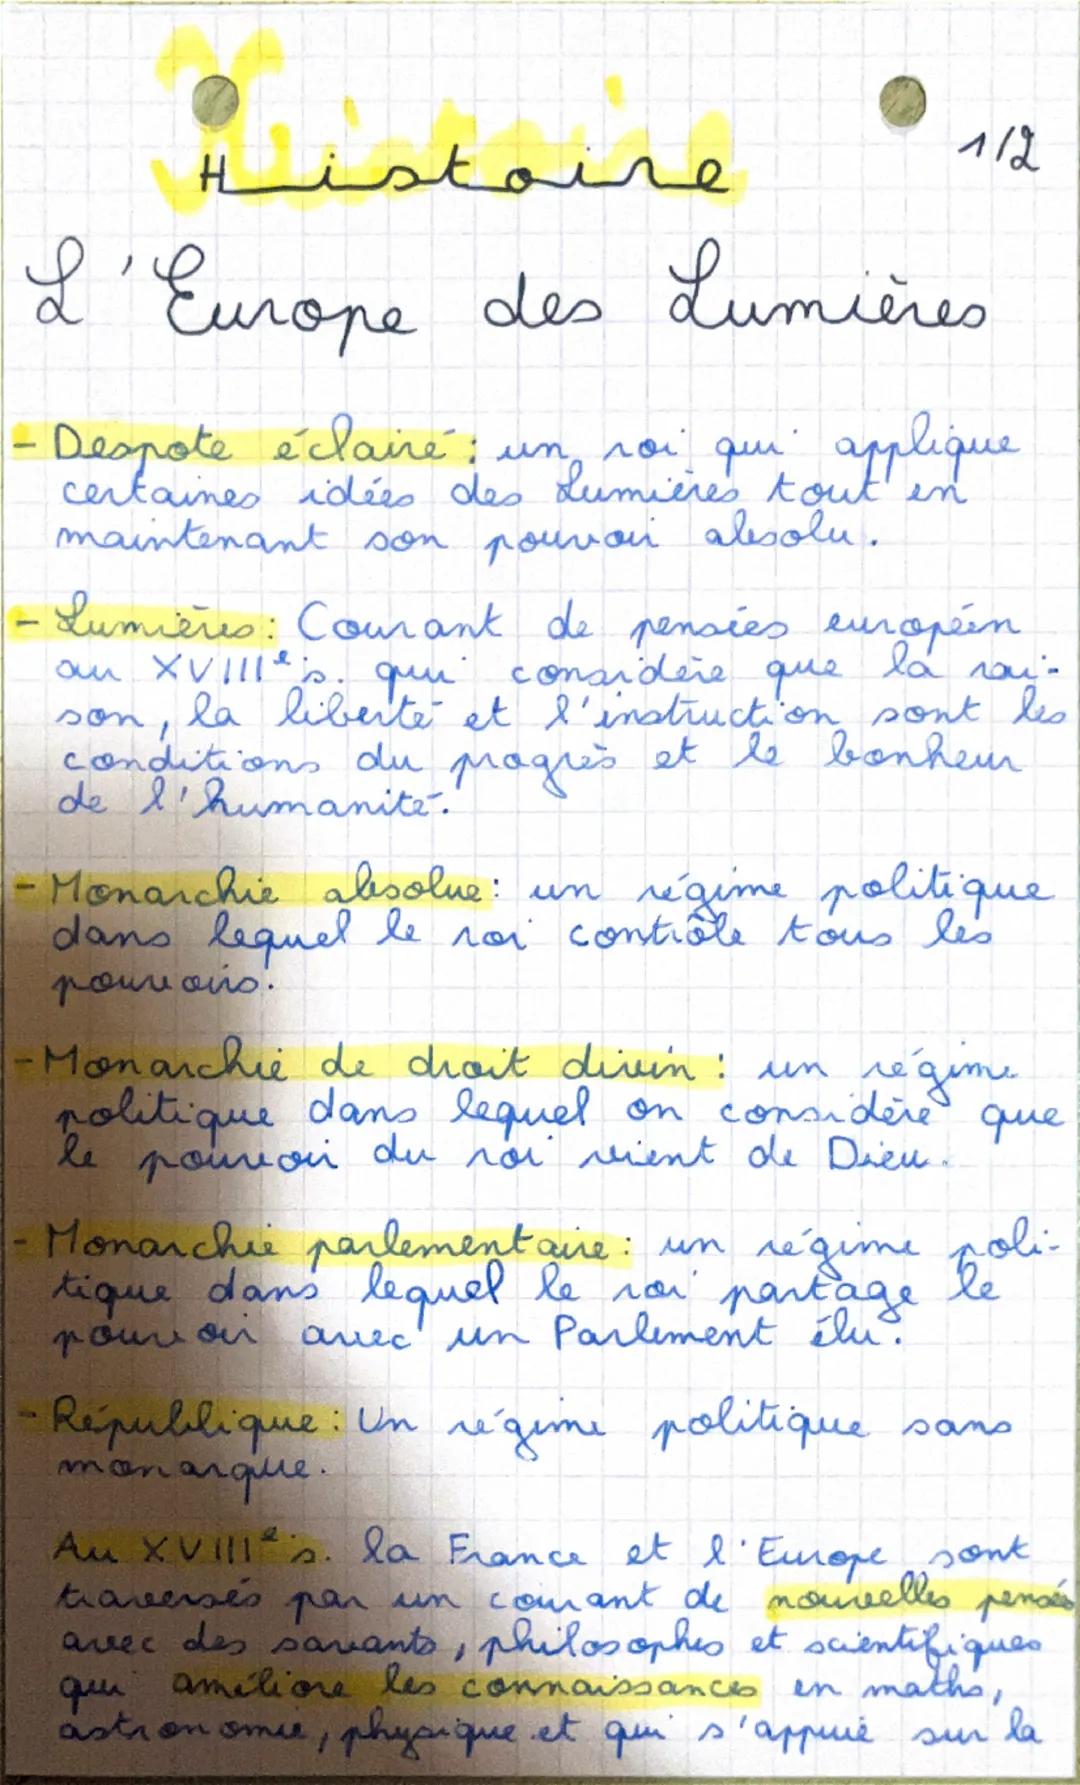 Histoire
1/2
L'Europe des Lumières
- Despote éclairé : un roi qui applique
certaines idées des Lumières tout en
maintenant son pouvoir absolu.
- Lumières : Courant de pensées européen
au XVIIIe s. qui considère que la rai-
son, la liberté et l'instruction sont les
conditions du progrès et le bonheur
de l'humanité.
- Monarchie absolue : un régime politique
dans lequel le roi contrôle tous les
pouvoirs.
- Monarchie de droit divin : un régime
politique dans lequel on considère que
le pouvoir du roi vient de Dieu.
- Monarchie parlementaire : un régime poli-
tique dans lequel le roi partage le
pouvoir avec un Parlement élu.
- République : Un régime politique sans
monarque.
Au XVIIIe s. la France et l'Europe sont
traversés par un courant de nouvelles pensés
avec des savants, philosophes et scientifiques
qui améliore les connaissances en maths,
astronomie, physique et qui s'appuie sur la